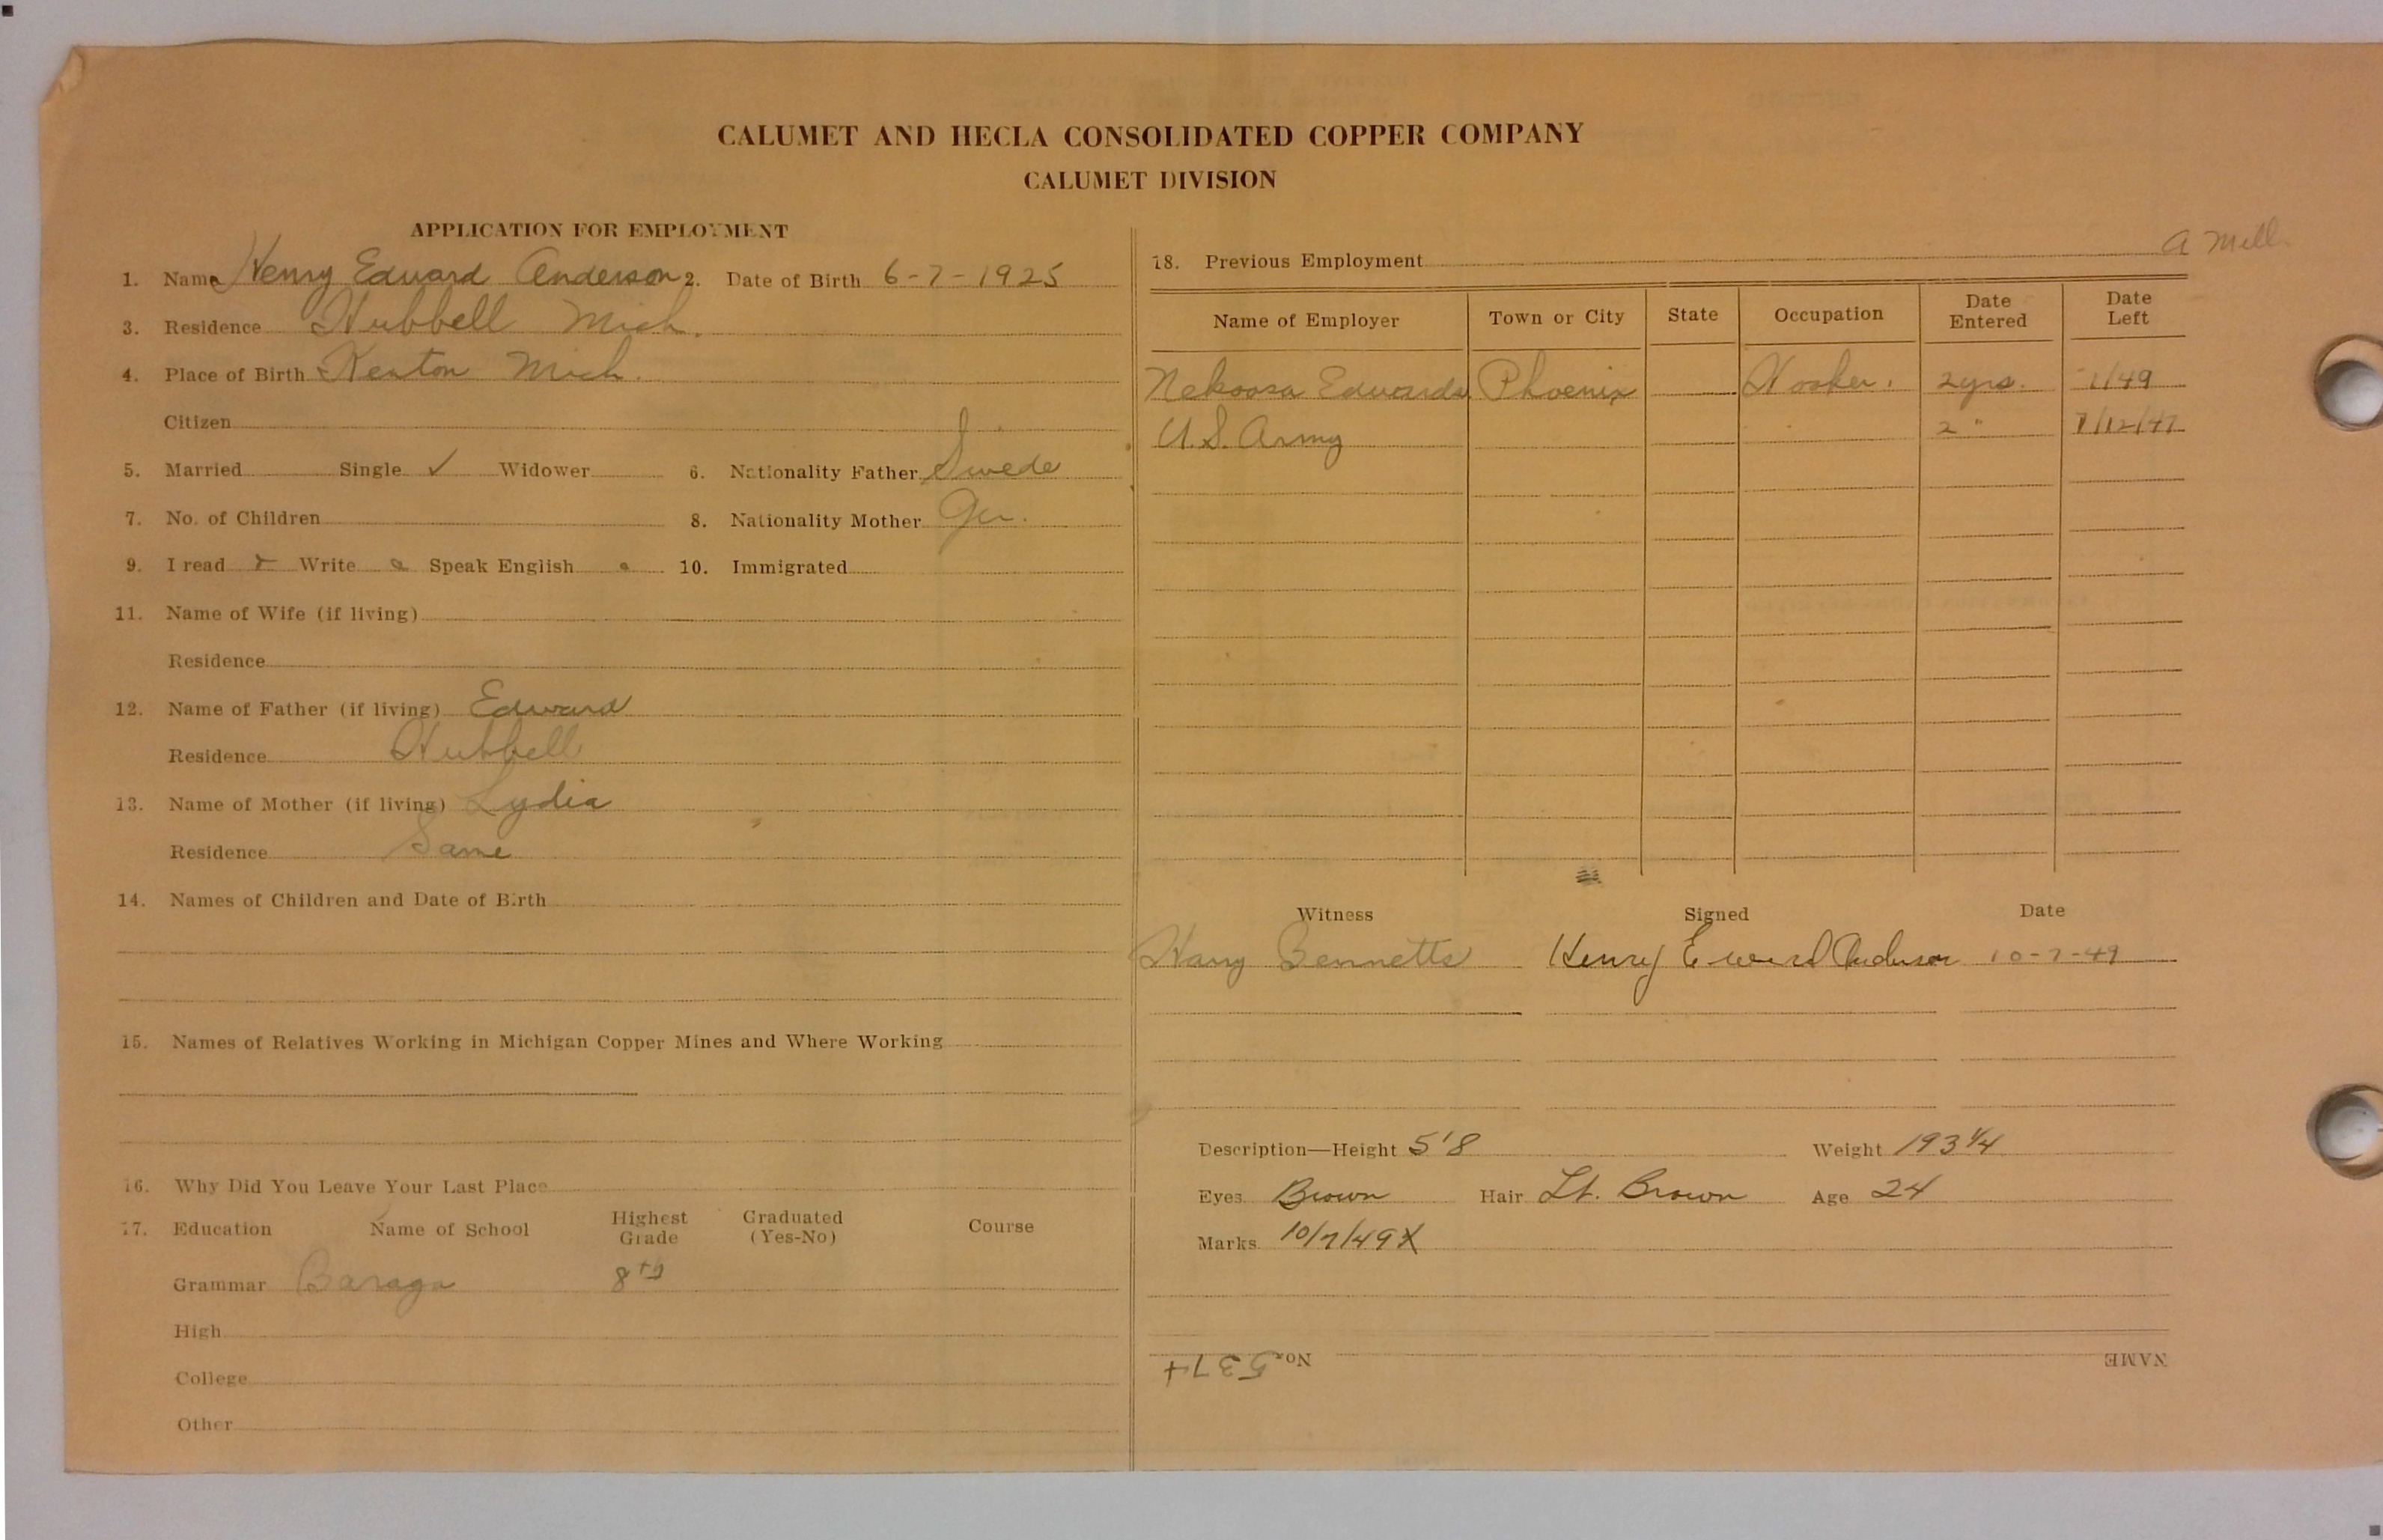 CALUMET AND HECLA CONSOLIDATED COPPER COMPANY
CALUMET DIVISION
APPLICATION FOR EMPLOYMENT
1. Name Henry Edward Anderson 2. Date of Birth 6-7-1925
3. Residence Hubbell Mich.
4. Place of Birth Kenton Mich.
Citizen
5. Married Single ✓ Widower 6. Nationality Father Swede
7. No. of Children 8. Nationality Mother Ger.
9. I read Write Speak English 10. Immigrated
11. Name of Wife (if living)
Residence
12. Name of Father (if living) Edward
Residence Hubbell
13. Name of Mother (if living) Lydia
Residence Same
14. Names of Children and Date of Birth
15. Names of Relatives Working in Michigan Copper Mines and Where Working
16. Why Did You Leave Your Last Place
17. Education Name of School Highest Grade Graduated (Yes-No) Course
Grammar Baraga 8th
High
College
Other
18. Previous Employment A Mill.
Name of Employer Town or City State Occupation Date Entered Date Left
Nekoosa Edwards Phoenix Hooker. 2 yrs. 1/49
U.S. Army 2 " 7/12/47
Witness Signed Date
Harry Bennetts Henry Edward Anderson 10-7-49
Description—Height 5'8 Weight 193 1/4
Eyes Brown Hair Lt. Brown Age 24
Marks 10/7/49 X
NAME No. 5374